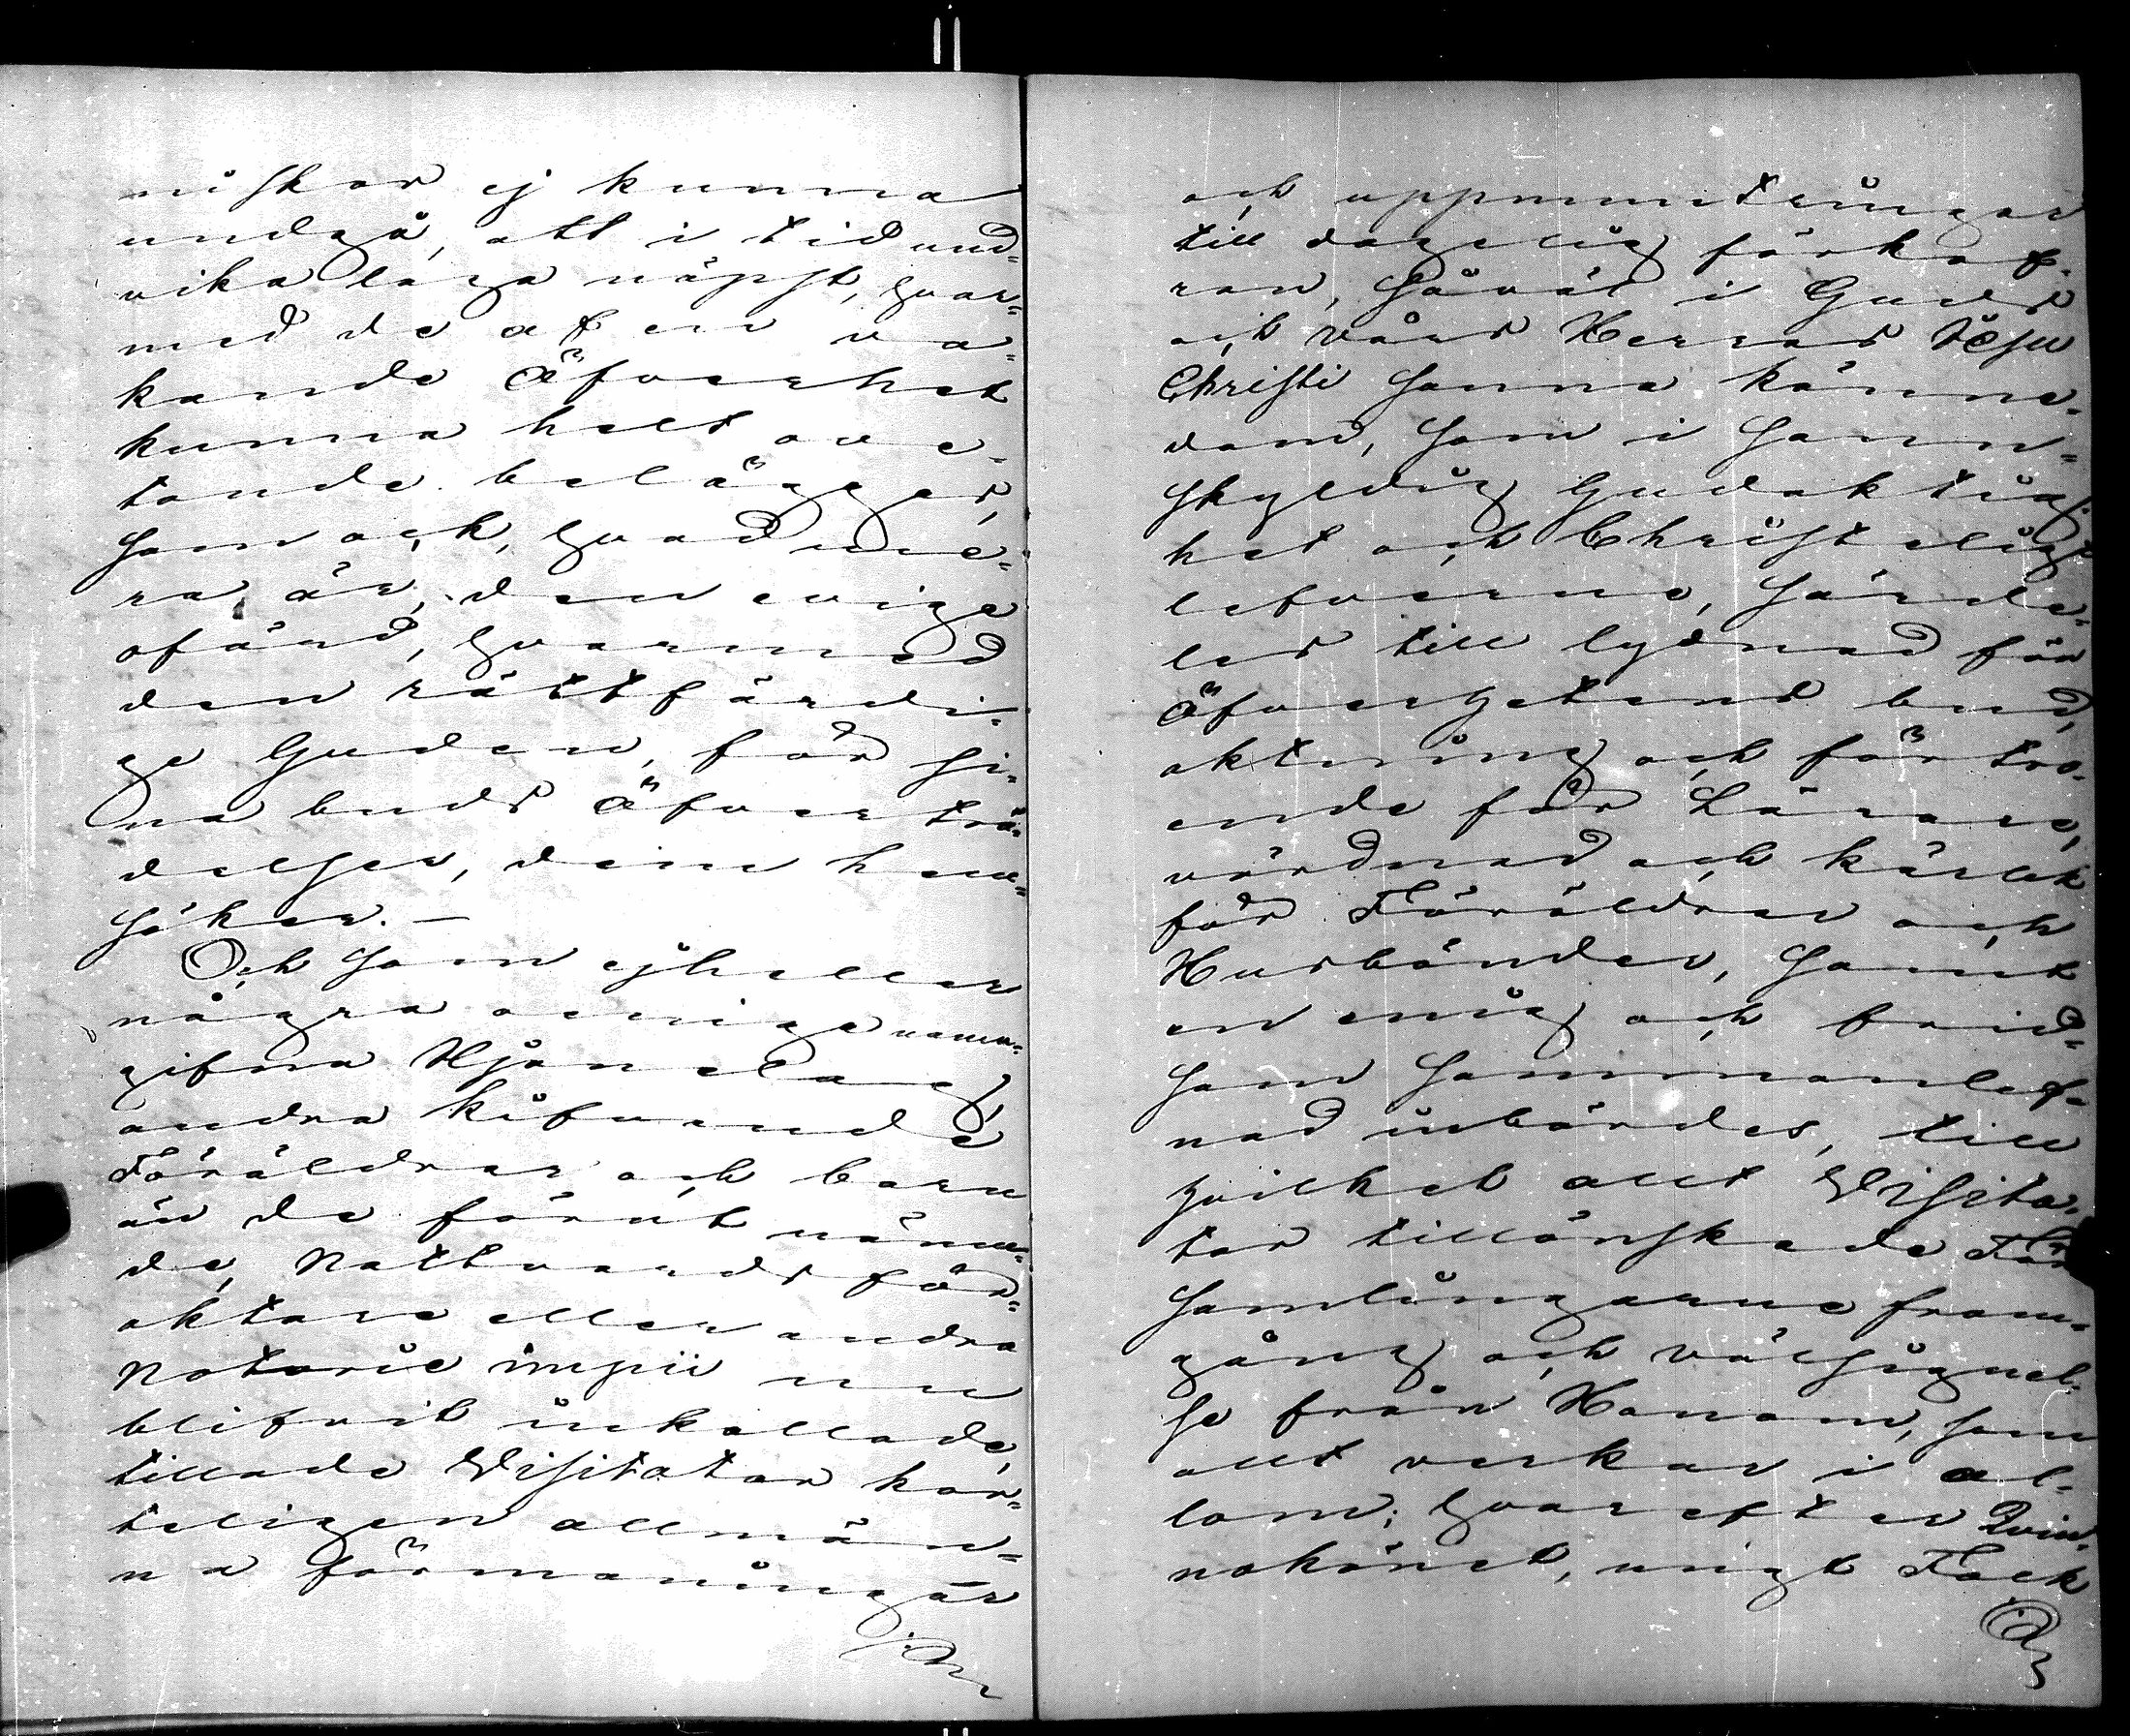 niskor ej kunna
undgå, att i tid und-
vika laga näpst, hvar-
med de af en va-
kande Öfverhet
kunna helt ove-
tande beläggas,
som ock, hvad me-
ra är, den eviga
ofärd, hvarmed
den rättfärdi-
ge Guden, för si-
na buds öfverträ-
delser, dem hem-
söker. —
Och som ejheller
några oenige namn-
gifna Hjonelag,
andra kifvande
Föräldrar och barn
än de förut nämn-
de, Nattvards för-
aktare eller andra
Notorie impii nu
blifvit inkallade,
tillade Visitator kor-
teligen allmän-
na förmaningar
och uppmuntringar
till dagelig förkof-
ran, såväl i Guds
och vårs Herras Jesu
Christi sanna känne-
dom, som i sann-
skyldig Gudaktig-
het och Christelig
lefverne, särde-
les till lydnad för
Öfverhetens bud,
aktning och förtro-
ende för Lärare,
vördnad och kärlek
för Föräldrar och
Husbönder, samt
en enig och frid-
sam sammanlef-
nad inbördes, till
hvilket allt Visita-
tor tillönskade För-
samlingarne fram-
gång och välsignel-
se från Honom, som
allt verkar i al-
lom; hvarefter Qvin-
nokönet, ungt Folk